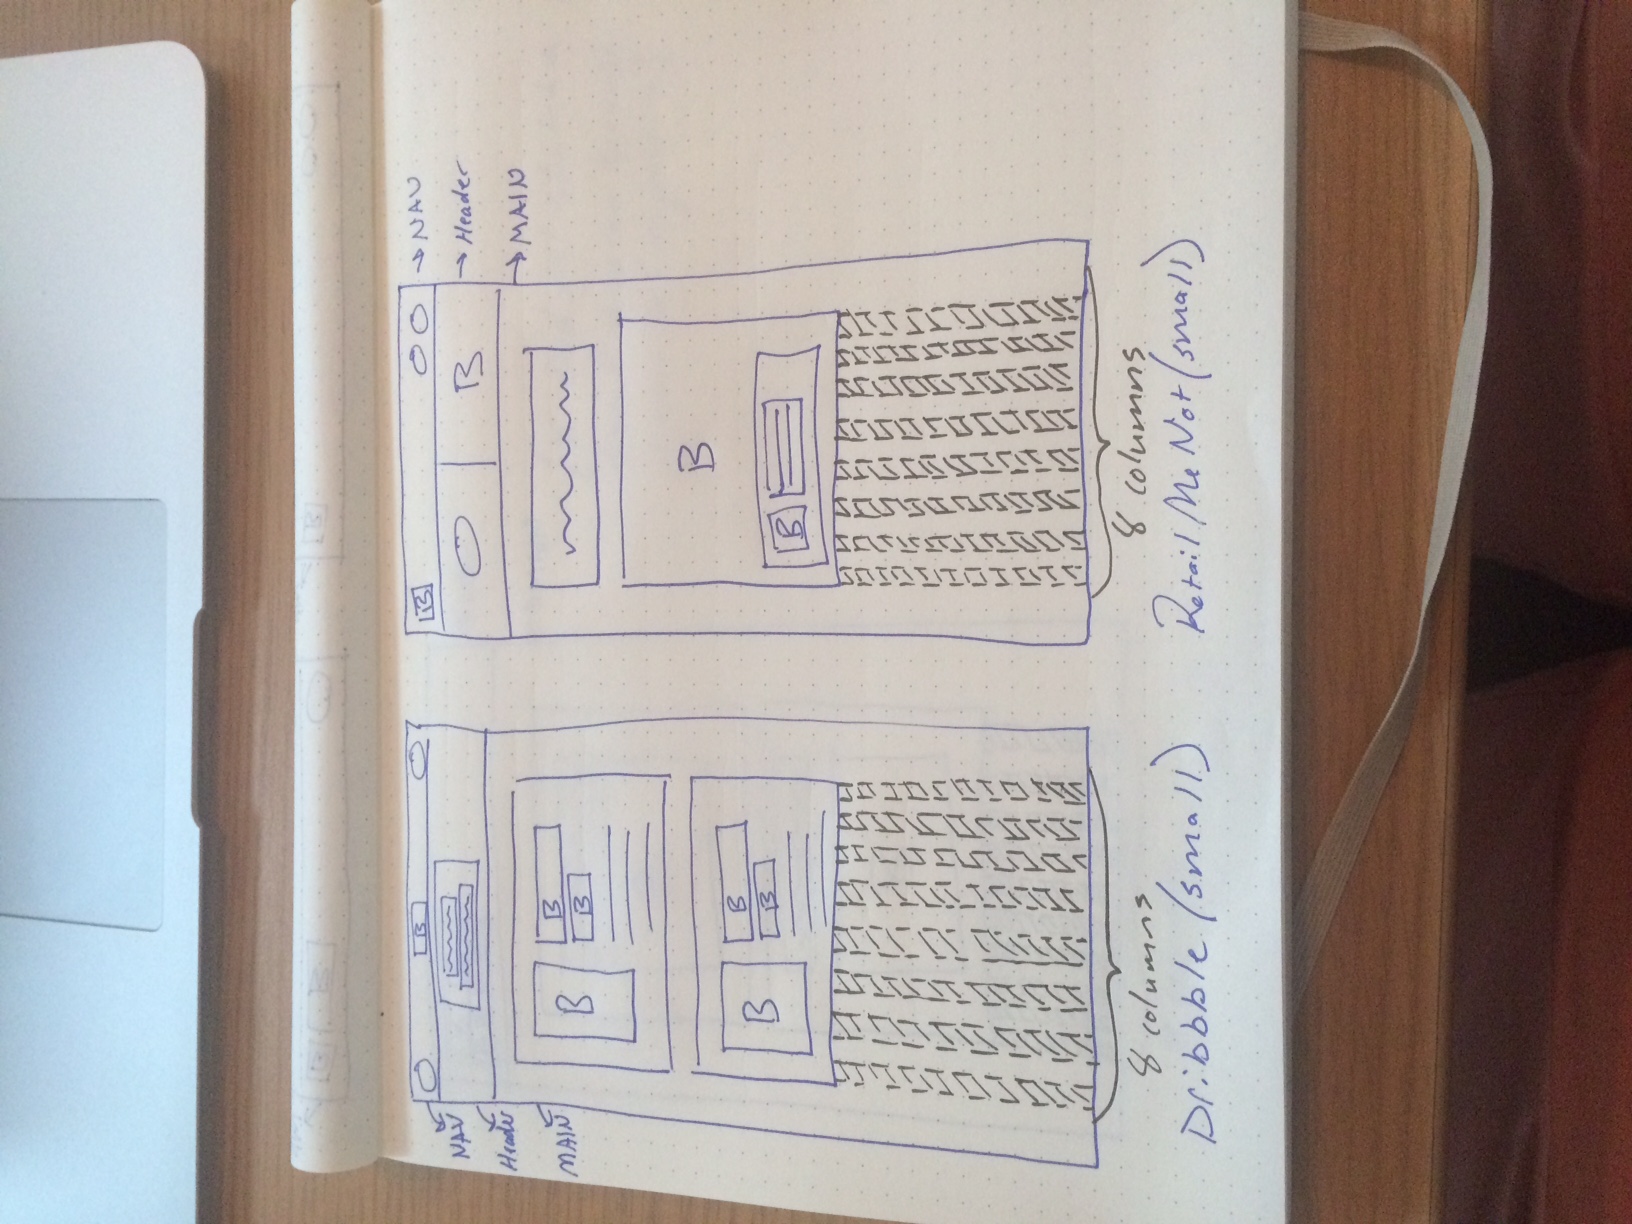 B
NAV
Header
MAIN
B
B
B
B
B
B
8 columns
Dribbble (small)
B
NAV
B
Header
MAIN
B
B
8 columns
Retail Me Not (small)